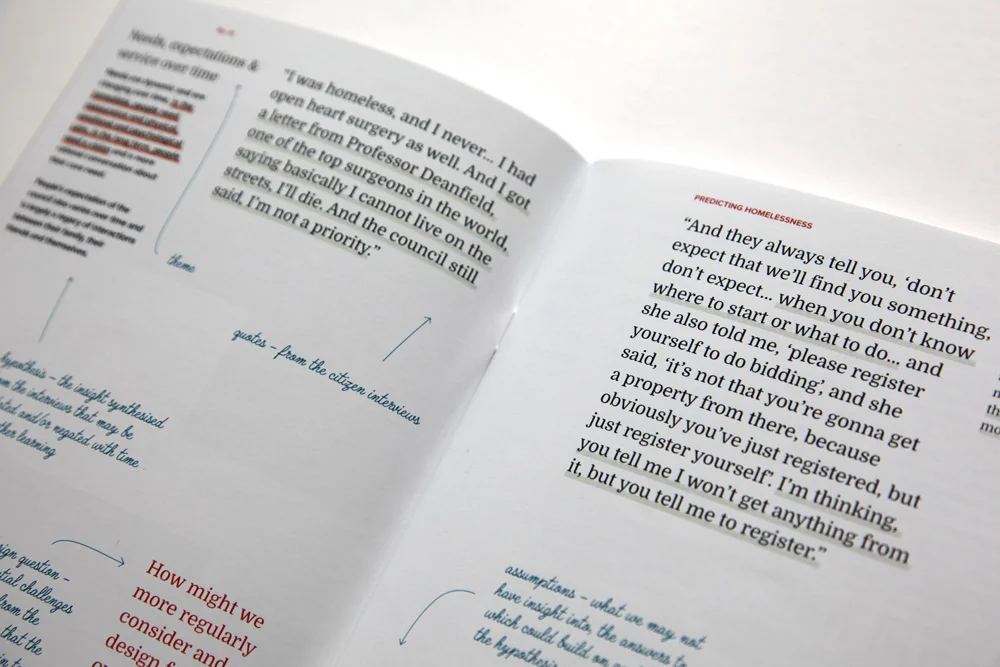 Needs, expectations &
service over time
"Needs are dynamic and are
changing over time,
their core need.
People's expectation of the
council also spans over time and
is largely a legacy of interactions
between their family, their
friends and themselves.
"I was homeless, and I never... I had
open heart surgery as well. And I got
a letter from Professor Deanfield,
one of the top surgeons in the world,
saying basically I cannot live on the
streets, I'll die. And the council still
said, I'm not a priority."
theme
quotes – from the citizen interviews
hypothesis – the insight synthesised
from the interviews that may be
and/or negated with time
learning
question –
challenges
from the
that the
How might we
more regularly
consider and
design
PREDICTING HOMELESSNESS
"And they always tell you, 'don't
expect that we'll find you something,
don't expect... when you don't know
where to start or what to do... and
she also told me, 'please register
yourself to do bidding', and she
said, 'it's not that you're gonna get
a property from there, because
obviously you've just registered, but
just register yourself'. I'm thinking,
you tell me I won't get anything from
it, but you tell me to register."
assumptions – what we may not
have insight into, the answers to
which could build on
the hypothesis